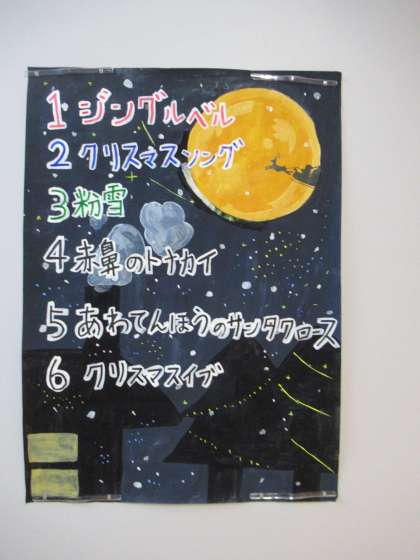 1 ジングルベル
2 クリスマスソング
3 粉雪
4 赤鼻のトナカイ
5 あわてんぼうのサンタクロース
6 クリスマスイブ